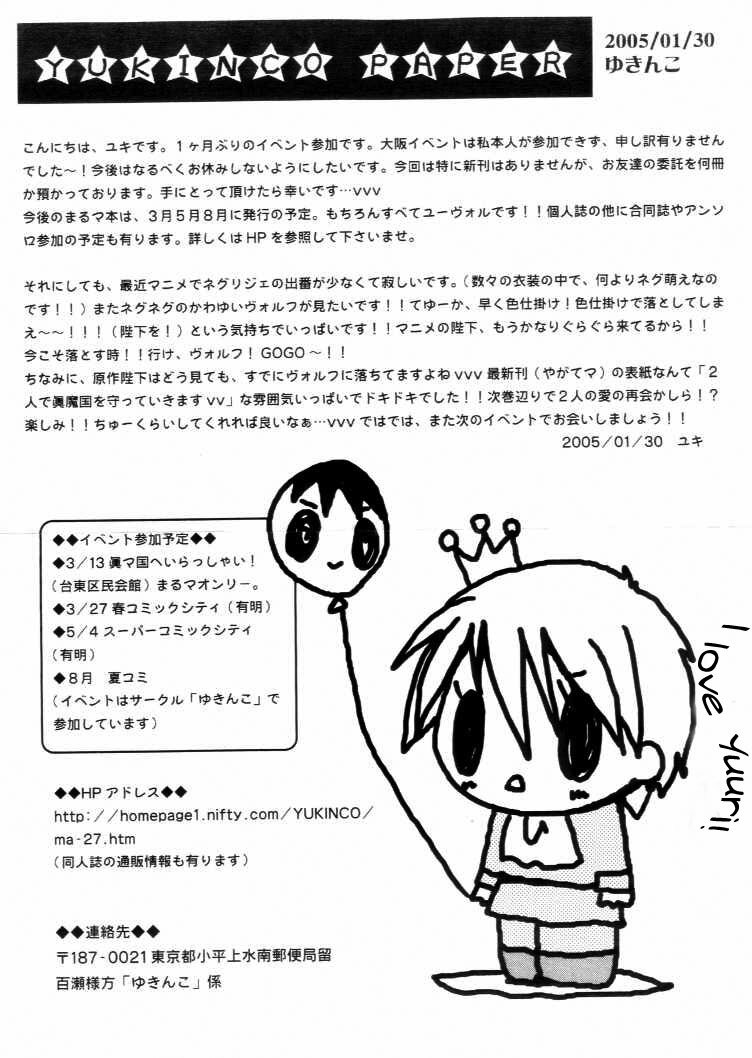 YUKINCO PAPER
2005/01/30
ゆきんこ
こんにちは、ユキです。１ヶ月ぶりのイベント参加です。大阪イベントは私本人が参加できず、申し訳有りません
でした～！今後はなるべくお休みしないようにしたいです。今回は特に新刊はありませんが、お友達の委託を何冊
か預かっております。手にとって頂けたら幸いです…vvv
今後のまるマ本は、３月５月８月に発行の予定。もちろんすべてユーヴォルです！！個人誌の他に合同誌やアンソ
ロ参加の予定も有ります。詳しくはHPを参照して下さいませ。
それにしても、最近マニメでネグリジェの出番が少なくて寂しいです。（数々の衣装の中で、何よりネグ萌えなの
です！！）またネグネグのかわゆいヴォルフが見たいです！！てゆーか、早く色仕掛け！色仕掛けで落としてしま
え～～！！！（陛下を！）という気持ちでいっぱいです！！マニメの陛下、もうかなりぐらぐら来てるから！！
今こそ落とす時！！行け、ヴォルフ！GOGO～！！
ちなみに、原作陛下はどう見ても、すでにヴォルフに落ちてますよねvvv最新刊（やがてマ）の表紙なんて「２
人で眞魔国を守っていきますvv」な雰囲気いっぱいでドキドキでした！！次巻辺りで２人の愛の再会かしら！？
楽しみ！！ちゅーくらいしてくれれば良いなぁ…vvvではでは、また次のイベントでお会いしましょう！！
2005／01／30　ユキ
◆◆イベント参加予定◆◆
◆3／13 眞マ国へいらっしゃい！
（台東区民会館）まるマオンリー。
◆3／27 春コミックシティ（有明）
◆5／4 スーパーコミックシティ
（有明）
◆８月　夏コミ
（イベントはサークル「ゆきんこ」で
参加しています）
I love Yuuri!!
◆◆HPアドレス◆◆
http://homepage1.nifty.com/YUKINCO/
ma-27.htm
（同人誌の通販情報も有ります）
◆◆連絡先◆◆
〒187-0021東京都小平上水南郵便局留
百瀬様方「ゆきんこ」係